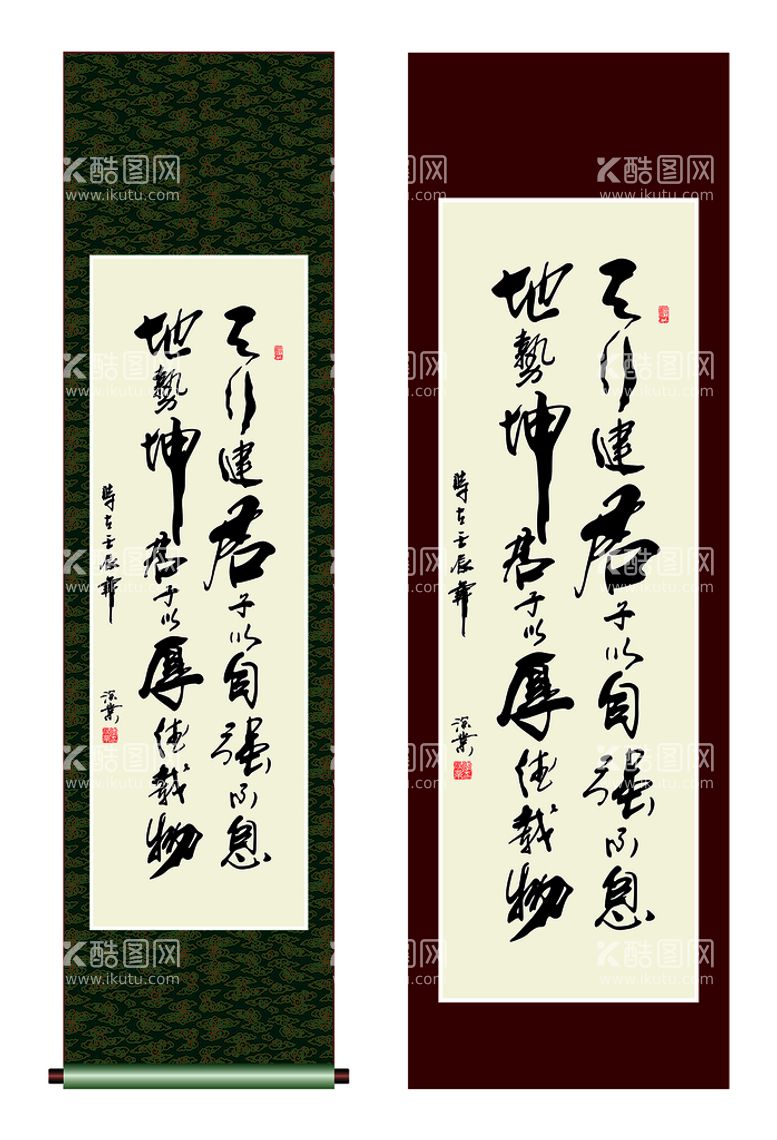 天行建君子以自强不息
地勢坤君子以厚德载物
時在壬辰年
深業
天行建君子以自强不息
地勢坤君子以厚德载物
時在壬辰年
深業
酷图网
www.ikutu.com